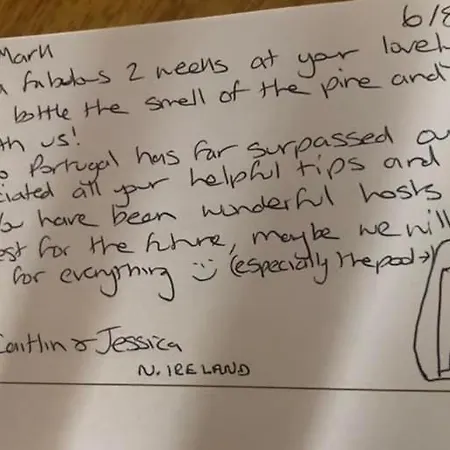 6/8
Mark
fabulous 2 weeks at your lovel
bottle the smell of the pine and
th us!
o Portugal has far surpassed ou
ciated all your helpful tips and
You have been wonderful hosts
est for the future, maybe we will
for everything :) (especially the pool →)
Caitlin & Jessica
N. IRELAND